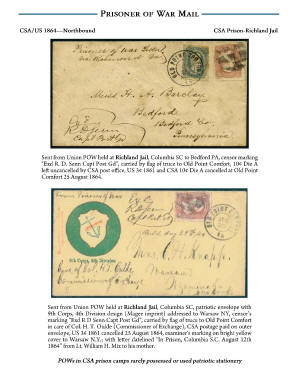 PRISONER OF WAR MAIL
CSA/US 1864—Northbound
CSA Prison-Richland Jail
Prisoner of War Letter
via Richmond Va
Miss H. A. Barclay
Bedford
Bedford Co.
Pennsylvania
Ex
R D Senn
Capt Post Gd
OLD POINT COMFORT
Sent from Union POW held at Richland Jail, Columbia SC to Bedford PA, censor marking
"Exd R. D. Senn Capt Post Gd", carried by flag of truce to Old Point Comfort, 10¢ Die A
left uncancelled by CSA post office, US 3¢ 1861 and CSA 10¢ Die A cancelled at Old Point
Comfort 25 August 1864.
Prisoner of War
Exd
R D Senn
Capt Post Gd
9th Corps, 4th Division
Mrs. C. H. Knapp
Warsaw
Sent from Union POW held at Richland Jail, Columbia SC, patriotic envelope with
9th Corps, 4th Division design (Magee imprint) addressed to Warsaw NY, censor's
marking "Exd R D Senn Capt Post Gd", carried by flag of truce to Old Point Comfort
in care of Col. H. T. Oxide (Commissioner of Exchange), CSA postage paid on outer
envelope, US 3¢ 1861 cancelled 25 August 1864, examiner's marking on bright yellow
cover to Warsaw N.Y.; with letter datelined "In Prison, Columbia S.C. August 12th
1864" from Lt William H. Mix to his mother.
POWs in CSA prison camps rarely possessed or used patriotic stationery